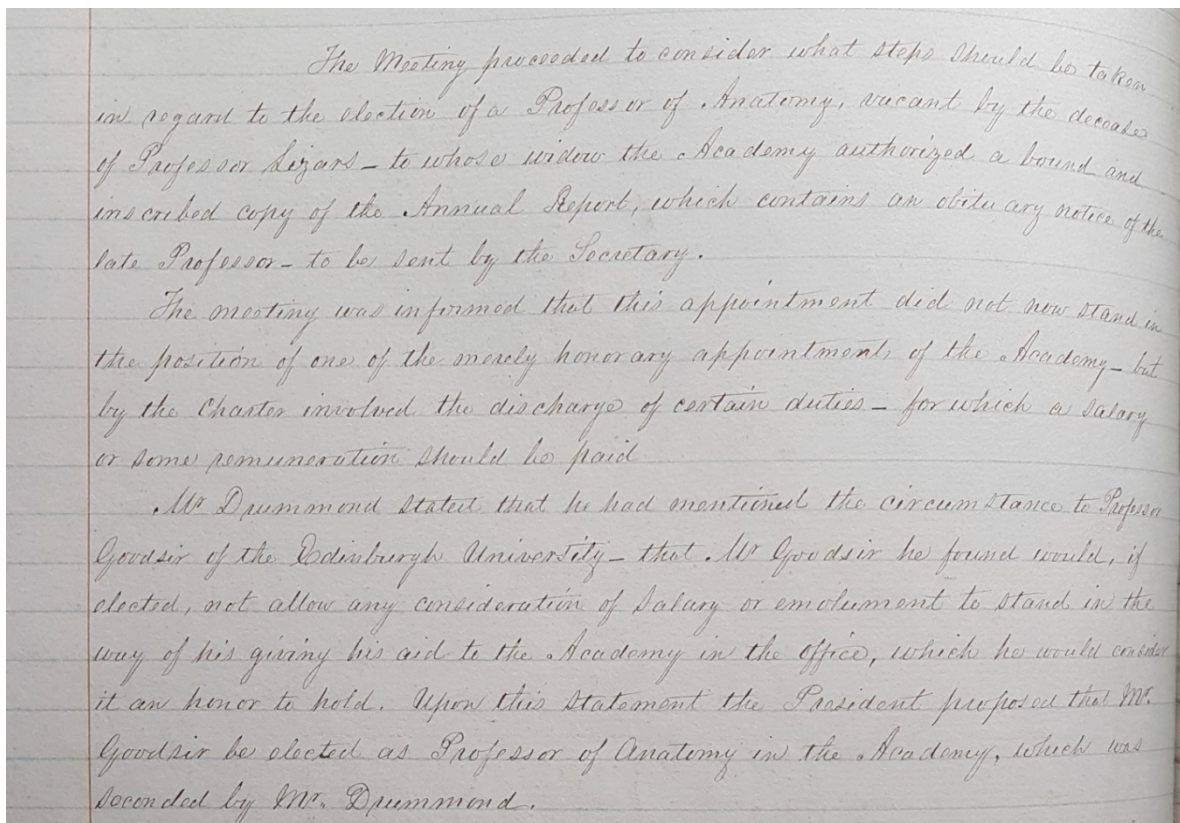 The Meeting proceeded to consider what steps should be taken
in regard to the election of a Professor of Anatomy, vacant by the decease
of Professor Lizars – to whose widow the Academy authorized a bound and
inscribed copy of the Annual Report, which contains an obituary notice of the
late Professor – to be sent by the Secretary.
The meeting was informed that this appointment did not now stand in
the position of one of the merely honorary appointments of the Academy – but
by the Charter involved the discharge of certain duties – for which a salary
or some remuneration should be paid
Mr Drummond stated that he had mentioned the circumstance to Professor
Goodsir of the Edinburgh University – that Mr Goodsir he found would, if
elected, not allow any consideration of salary or emolument to stand in the
way of his giving his aid to the Academy in the office, which he would consider
it an honor to hold. Upon this statement the President proposed that Mr.
Goodsir be elected as Professor of Anatomy in the Academy, which was
seconded by Mr. Drummond.